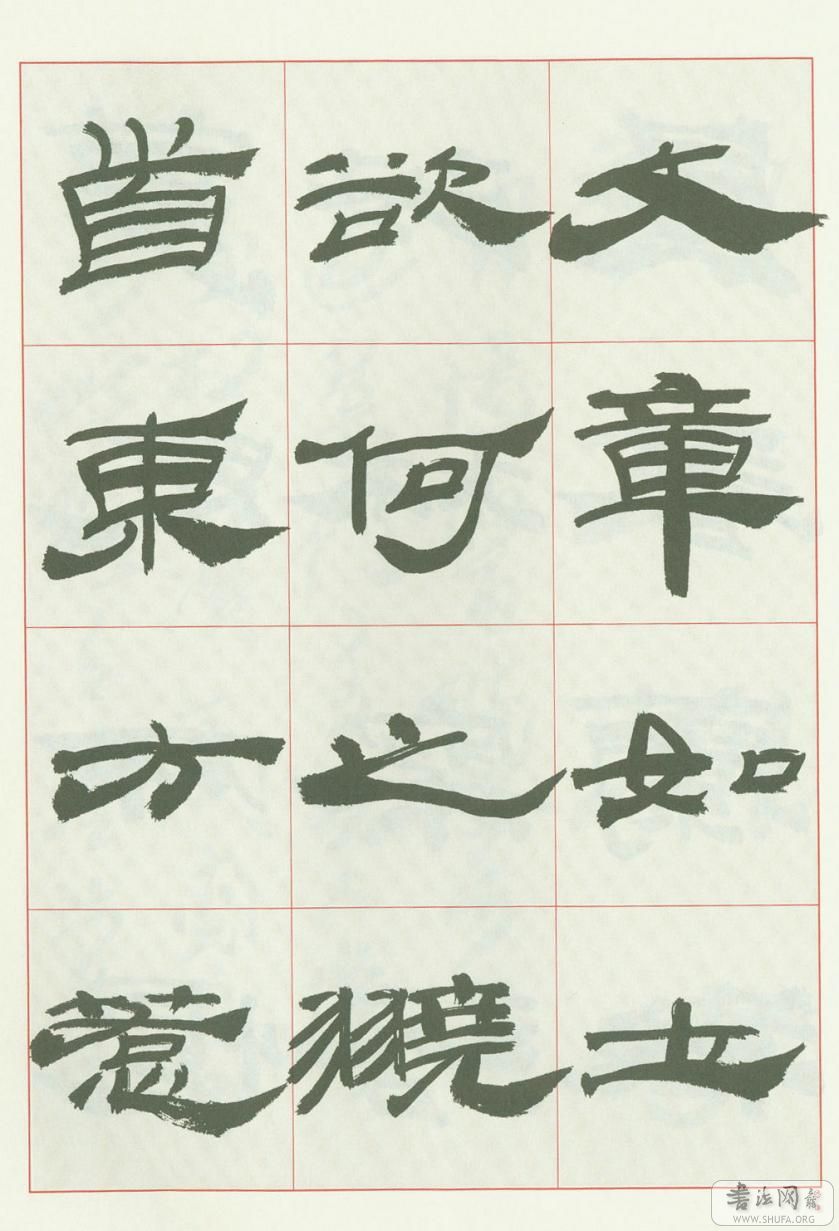 文章如土
欲何之翹
首東方惹
書法网
WWW.SHUFA.ORG